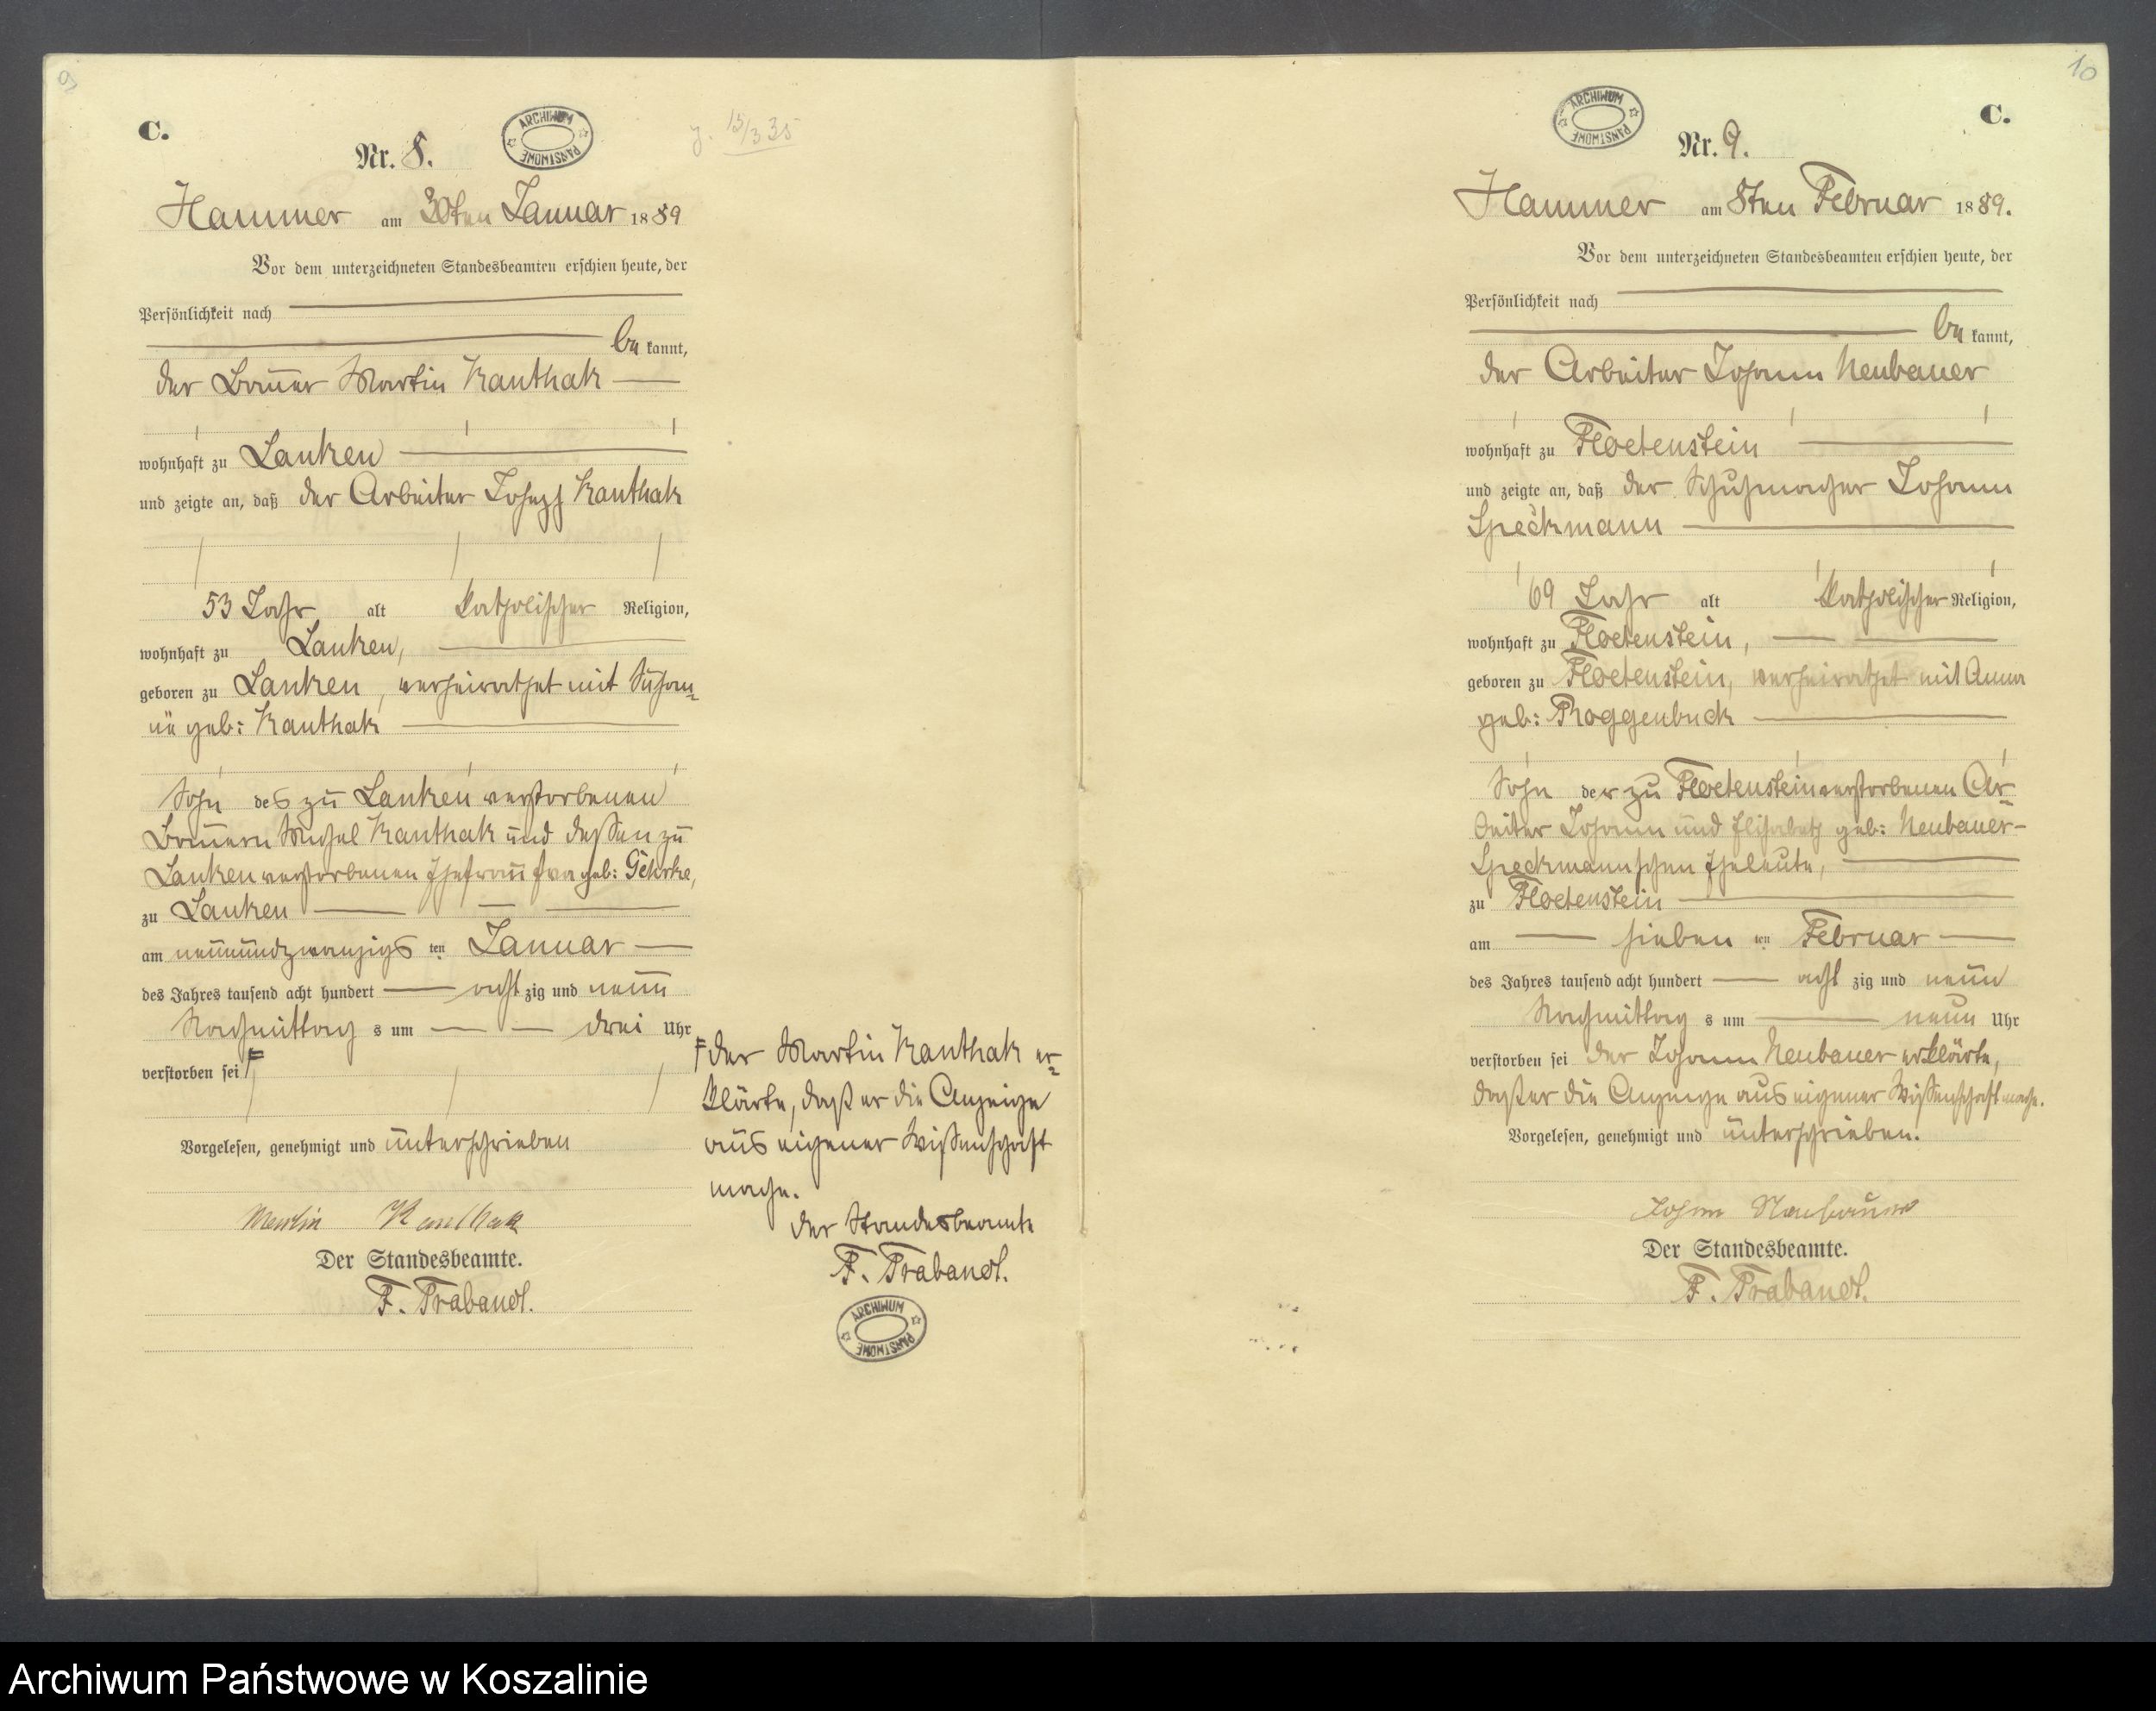 9
C.
Nr. 8.
ARCHIWUM PAŃSTWOWE
15/3 35
Hammer am 30ten Januar 1889
Vor dem unterzeichneten Standesbeamten erschien heute, der
Persönlichkeit nach
be kannt,
der Bauer Martin Kanthak
wohnhaft zu Lanken
und zeigte an, daß der Arbeiter Joseph Kanthak
53 Jahr alt katholischer Religion,
wohnhaft zu Lanken,
geboren zu Lanken, verheirathet mit Susan-
ne geb: Kanthak
Sohn des zu Lanken verstorbenen
Bauern Michel Kanthak und dessen zu
Lanken verstorbenen Ehefrau Eva geb: Gehrke,
zu Lanken
am neunundzwanzigs ten Januar
des Jahres tausend acht hundert acht zig und neun
Nachmittag s um drei Uhr
verstorben sei F
Vorgelesen, genehmigt und unterschrieben
Martin Kanthak
Der Standesbeamte.
F. Trabandt.
F der Martin Kanthak er-
klärte, daß er die Anzeige
aus eigener Wissenschaft
mache.
der Standesbeamte
F. Trabandt.
ARCHIWUM PAŃSTWOWE
10
C.
ARCHIWUM PAŃSTWOWE
Nr. 9.
Hammer am 8ten Februar 1889.
Vor dem unterzeichneten Standesbeamten erschien heute, der
Persönlichkeit nach
be kannt,
der Arbeiter Johann Neubauer
wohnhaft zu Floetenstein
und zeigte an, daß der Schuhmacher Johann
Speckmann
69 Jahr alt katholischer Religion,
wohnhaft zu Floetenstein,
geboren zu Floetenstein, verheirathet mit Anna
geb: Roggenbuck
Sohn der zu Floetenstein verstorbenen Ar-
beiter Johann und Elisabeth geb: Neubauer-
Speckmannschen Eheleute,
zu Floetenstein
am sieben ten Februar
des Jahres tausend acht hundert acht zig und neun
Nachmittag s um neun Uhr
verstorben sei der Johann Neubauer erklärte,
daß er die Anzeige aus eigener Wissenschaft mache.
Vorgelesen, genehmigt und unterschrieben.
Johan Neubauer
Der Standesbeamte.
F. Trabandt.
Archiwum Państwowe w Koszalinie